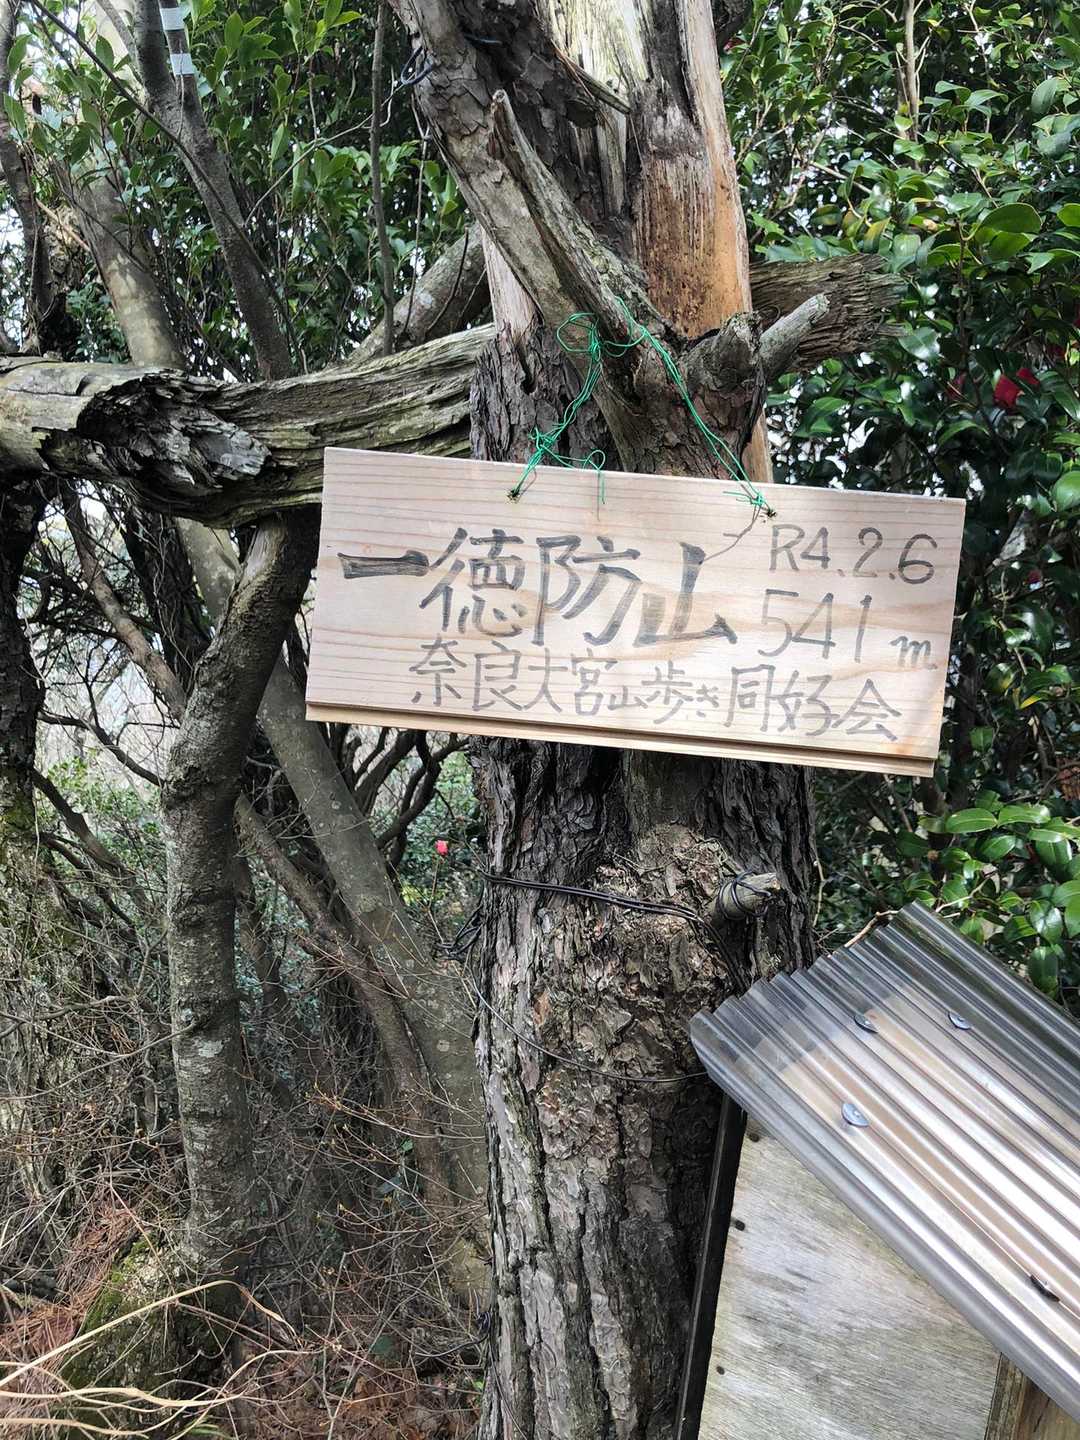 一徳防山 R4.2.6
541m
奈良大宮山歩き同好会